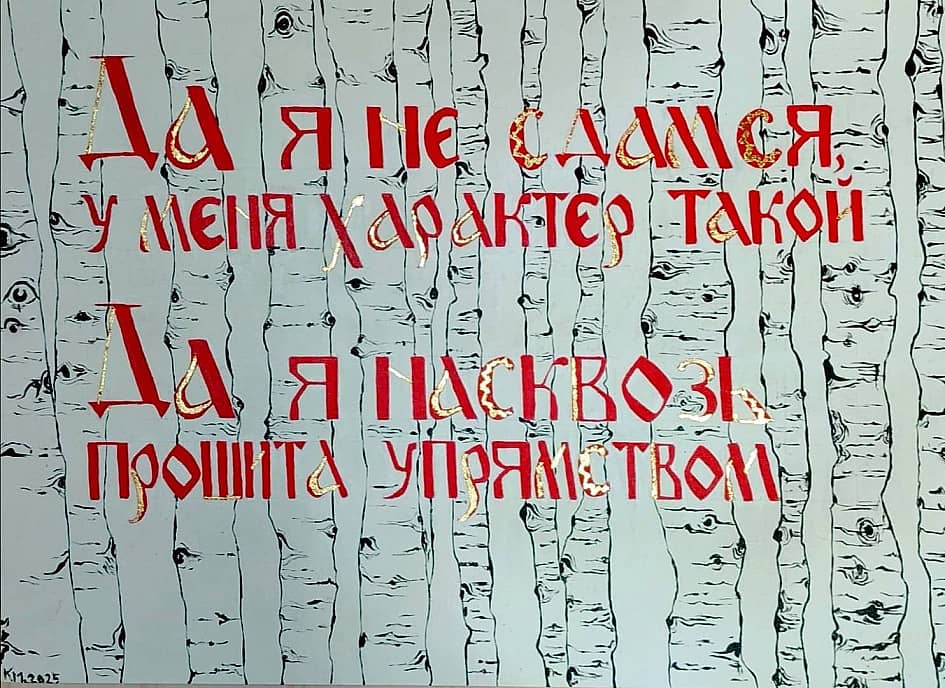 Да я не сдамся,
у меня характер такой
Да я насквозь
прошита упрямством
КМ.2025